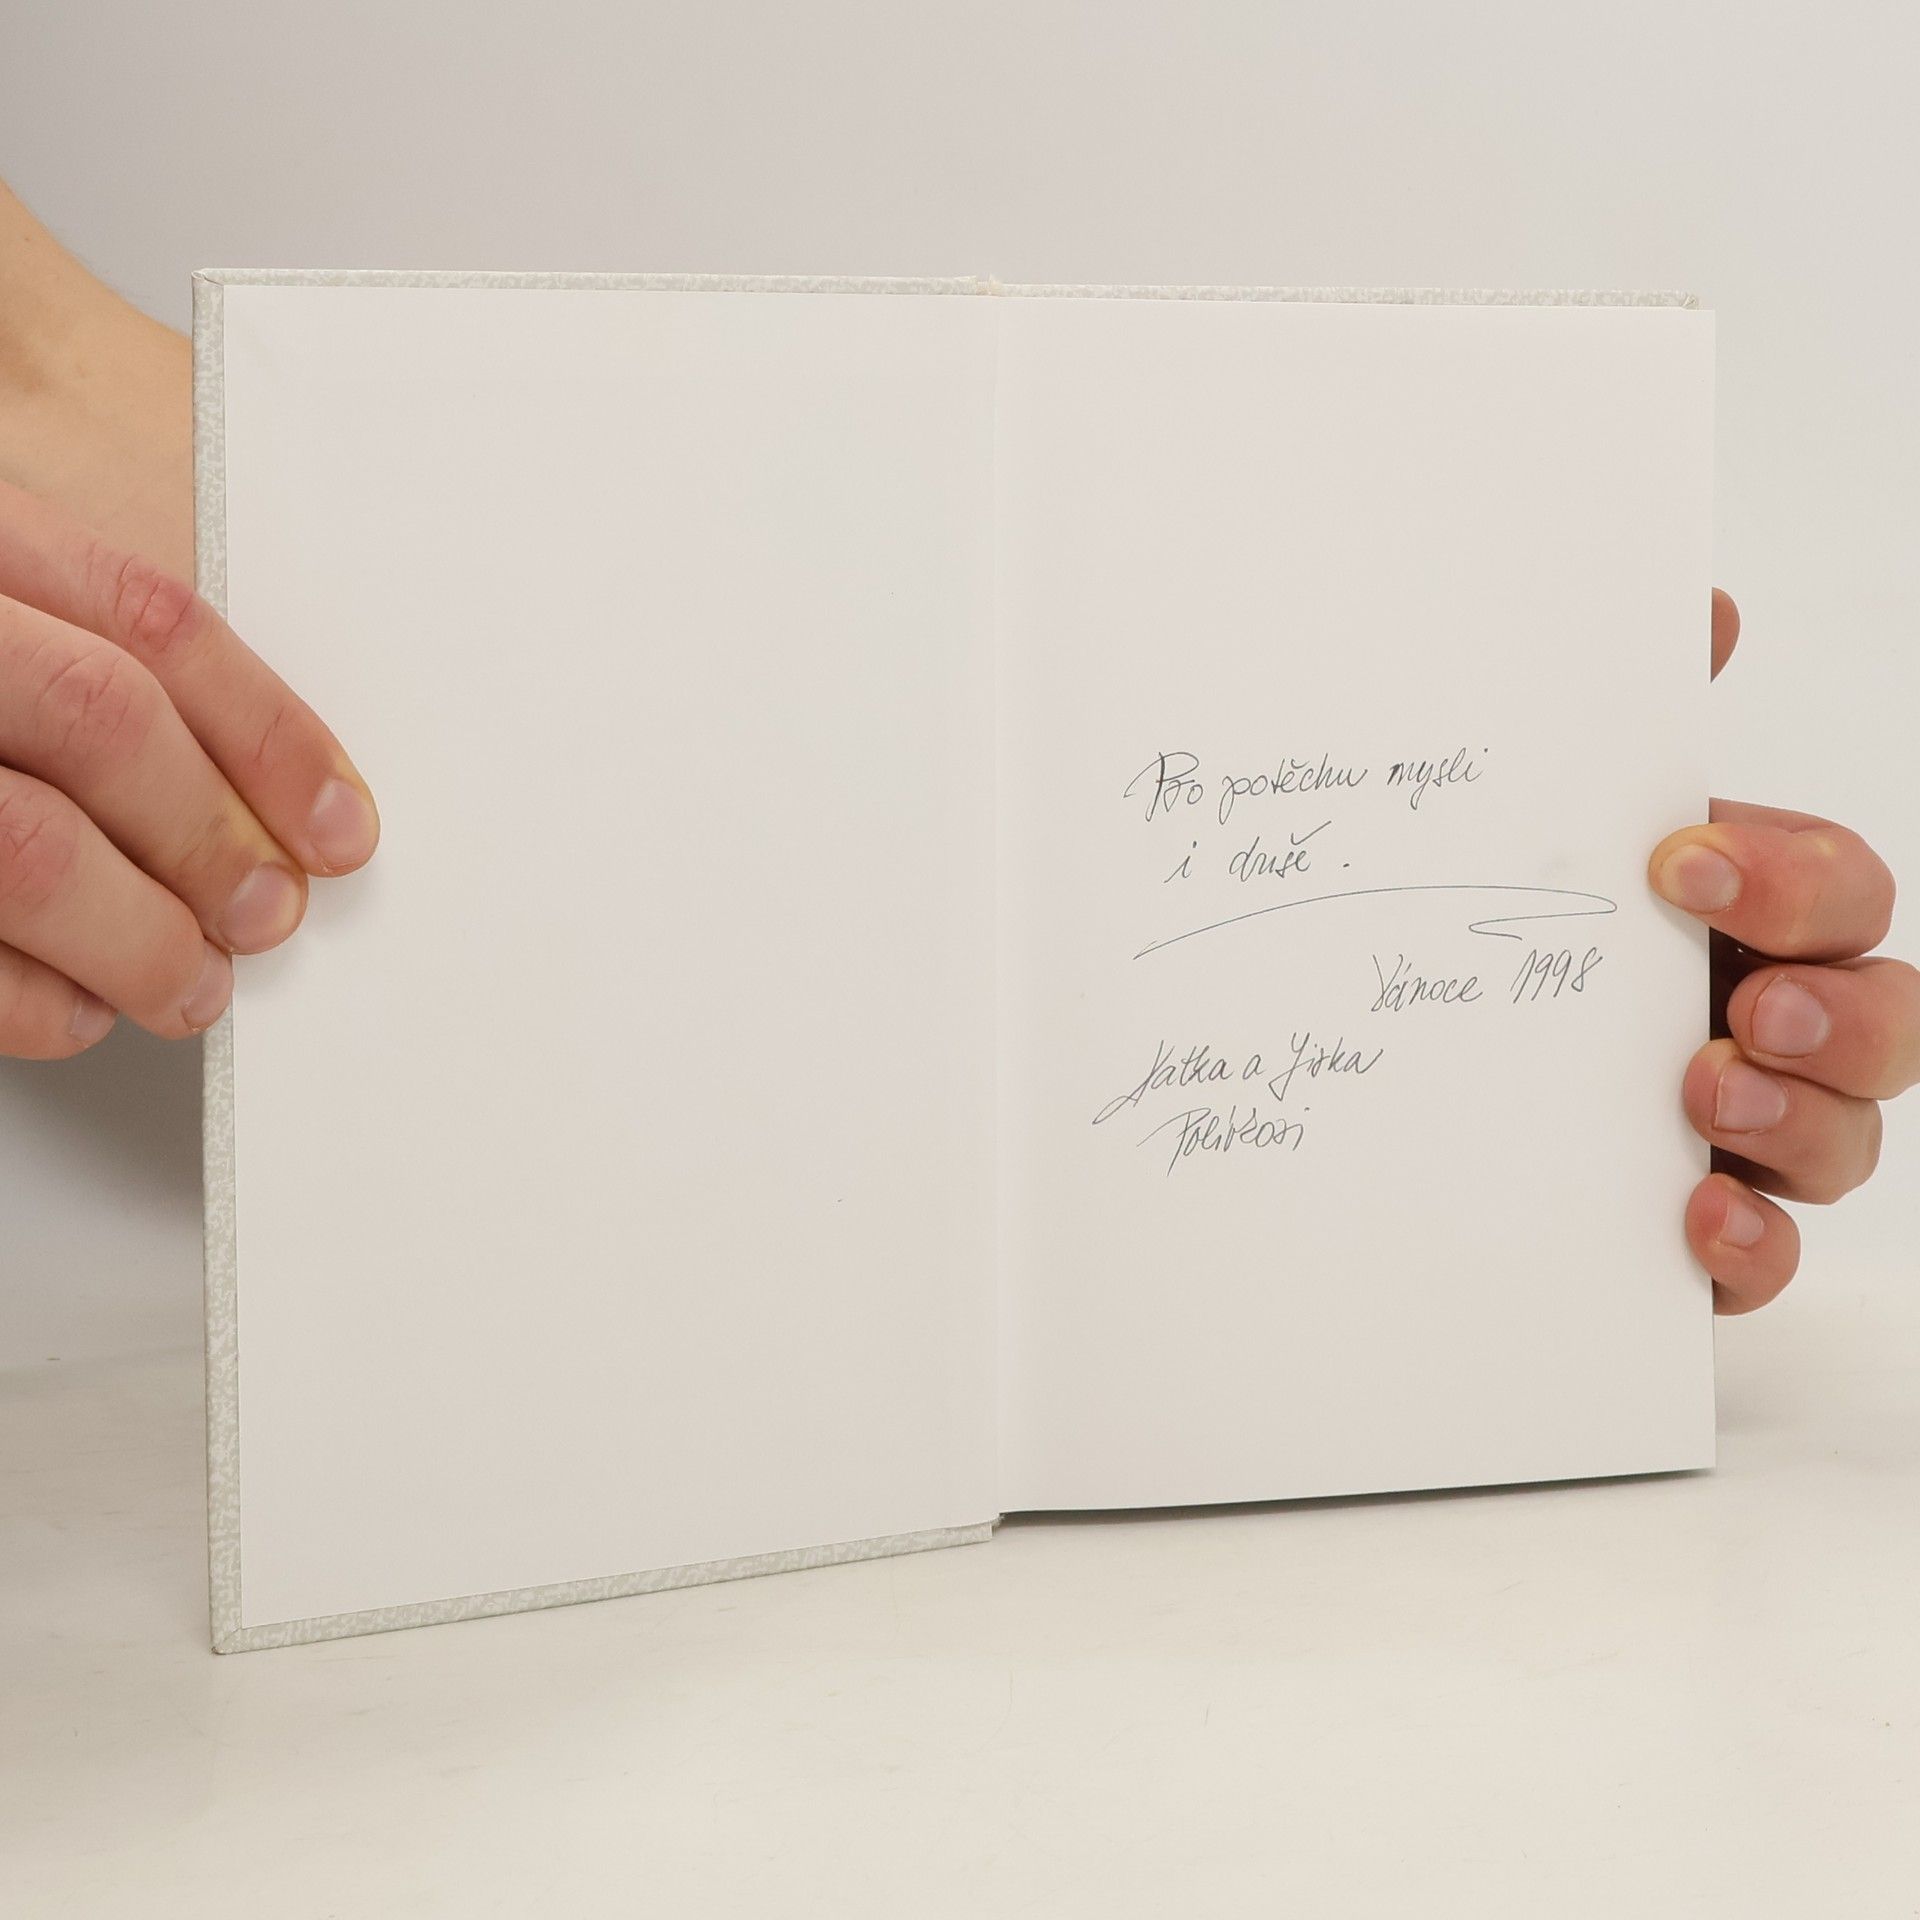 Pro potěchu mysli
i duše.
Vánoce 1998
Katka a Jirka